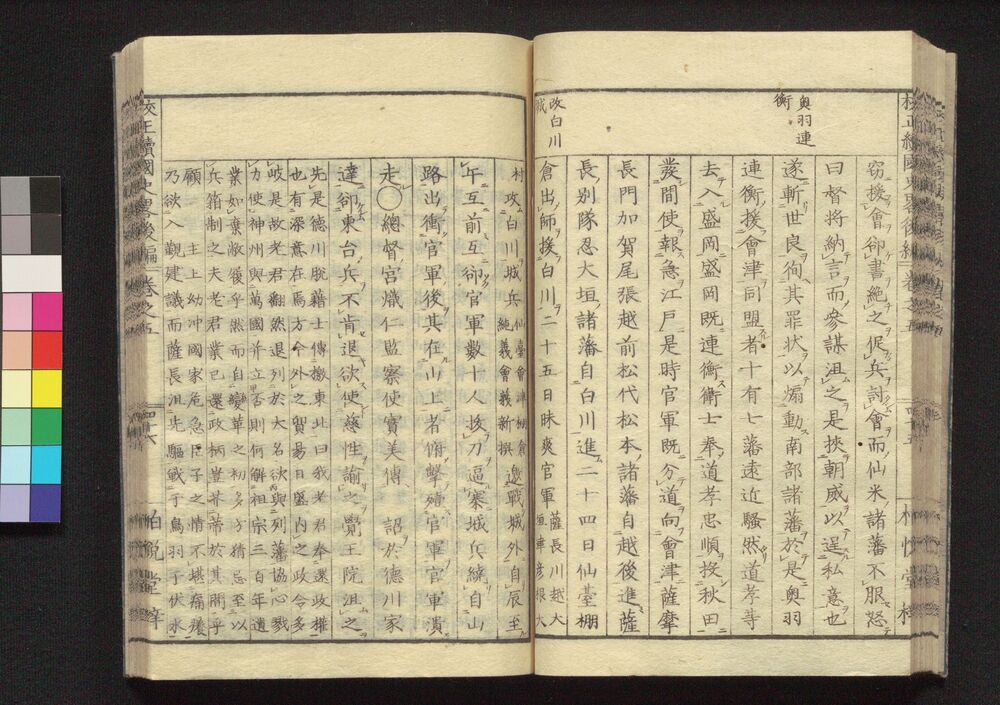 奥羽連
衡
竊援會卻書絶之俣兵討會而仙米諸藩不服怒
曰督將納言而參謀沮之是挾朝威以逞私意也
遂斬世良徇其罪状以煽動南部諸藩於是奥羽
連衡援會津同盟者十有七藩遠近騒然道孝等
去入盛岡盛岡既連衡衛士奉道孝忠順投秋田
發間使報急江戸是時官軍既分道向會津薩摩
長門加賀尾張越前松代松本諸藩自越後進薩
長別隊忍大垣諸藩自白川進二十四日仙臺棚
倉出師援白川二十五日昧爽官軍薩長川越大垣津彦根大
改白川
城
村攻白川城兵仙臺會津棚倉純義會義新撰邀戰城外自辰至
午互前互卻官軍數十人拔刀逼寨城兵繞自山
路出衝官軍後其在山上者俯撃殪官軍官軍潰
走〇總督宮熾仁監察使實美傳詔於德川家
達卻東台兵不肯退欲使慈性諭之覺王院沮之
先是德川脱籍士傳檄東北曰我老君奉還政權
也有深意在焉方今外之貿易日盛内之政令多
岐是故老君翻然退列於大名欲與列藩協心戮
力使神州與萬國并立否則何解祖宗三百年遺
業如棄敝屣乎然而自變革之初多方猜忌至以
兵箝制之夫老君業已還政柄豈芥蒂於其間乎
顧主上幼冲國家危急臣子之情不堪痛癢
乃欲入觀建議而薩長沮先驅戰于鳥羽于伏水
續國史畧後編 卷之五
四十六